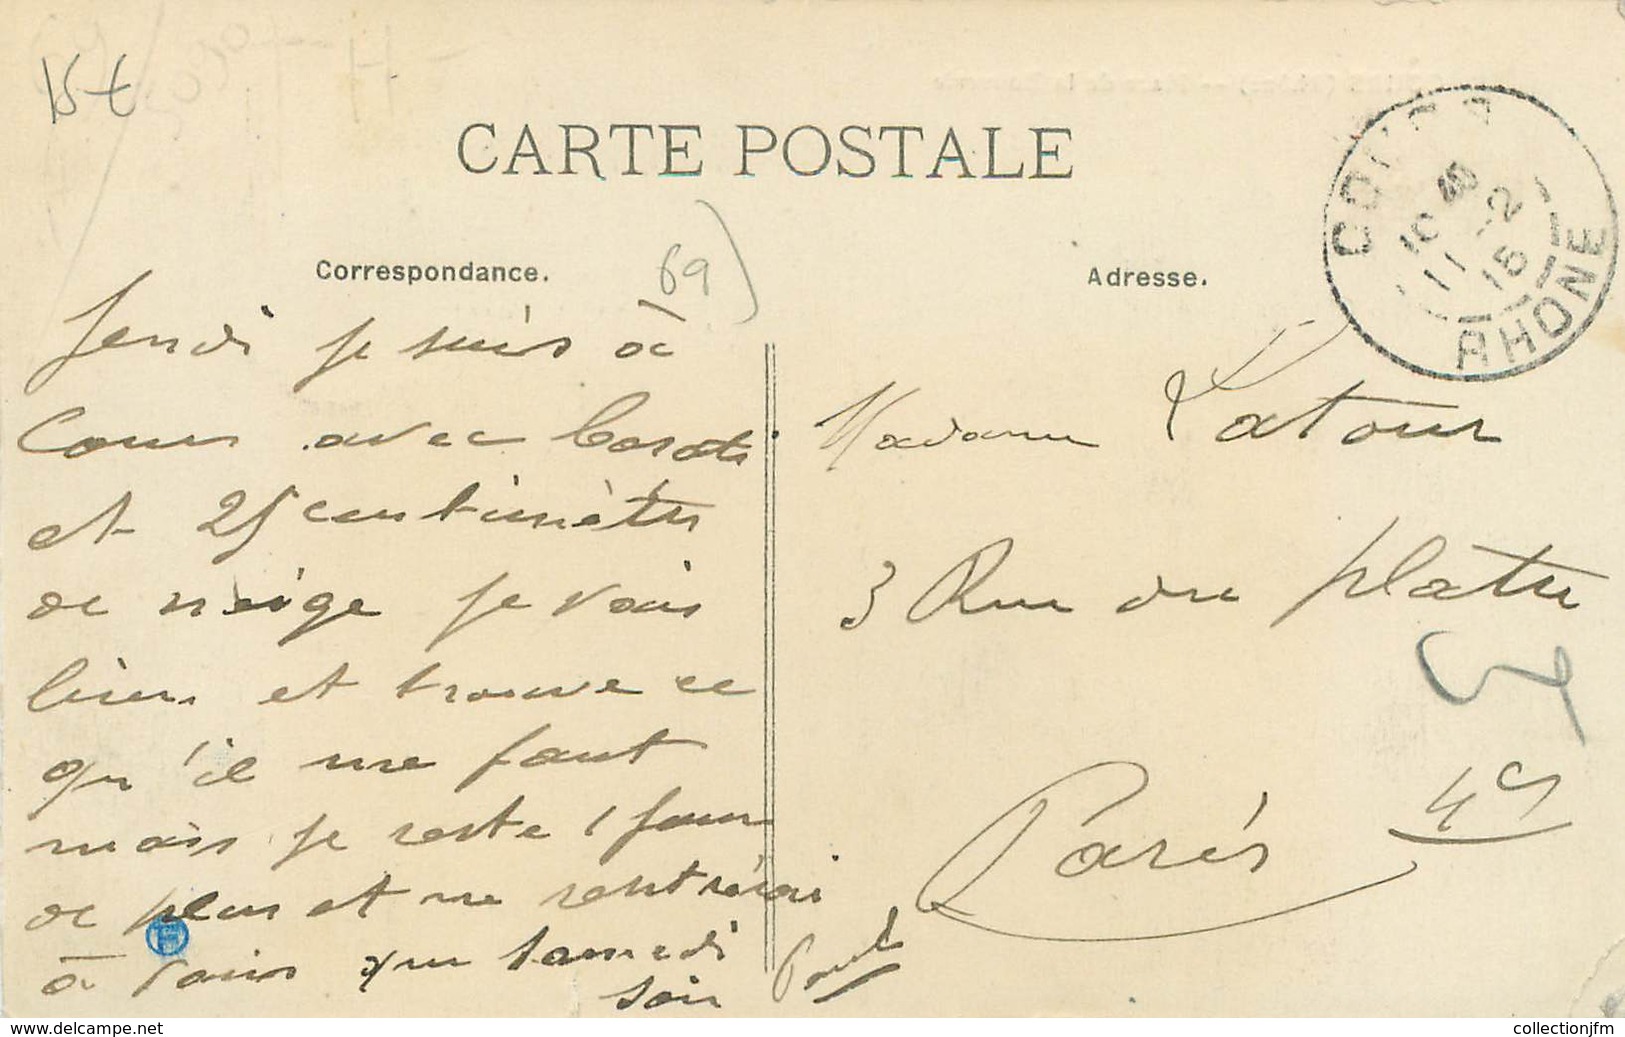 15 €
CARTE POSTALE
Correspondance.
69
Adresse.
RHONE
10 45
11 -2
15
Jeudi je suis à
Cours avec
et 25 centimètres
de neige je vais
bien et trouve ce
qu'il me faut
mais je reste 1 jour
de plus et ne rentrerai
à Paris que samedi
soir Paul
Madame Latour
3 Rue du platre
Paris 4e
www.delcampe.net
collectionjfm